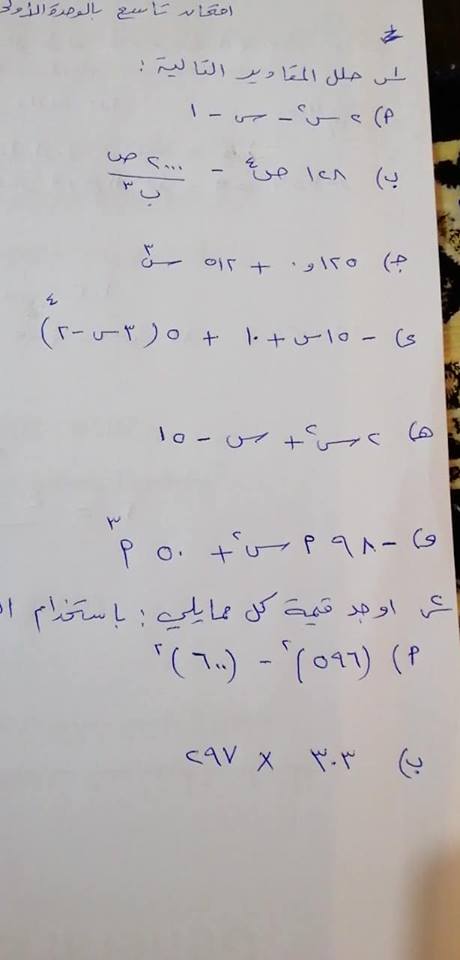 امتحان تاسع بالوحدة الأولى
س١ حلل المقادير التالية :
أ) ٢ س٢ - س - ١
ب) ١٢٨ ص٤ - ٢٠٠٠ ص / ب٣
ج) ١٢٥و٠ + ٥١٢ س٣
د) - ١٥س + ١٠ + ٥ (٣س - ٢)٤
هـ) ٢ س٢ + س - ١٥
و) - ٩٨ أ س٢ + ٥٠ أ٣
س٢ اوجد قيمة كل مما يلي : باستخدام
أ) (٥٩٦)٢ - (٦٠٠)٢
ب) ٣٠٣ × ٢٩٧